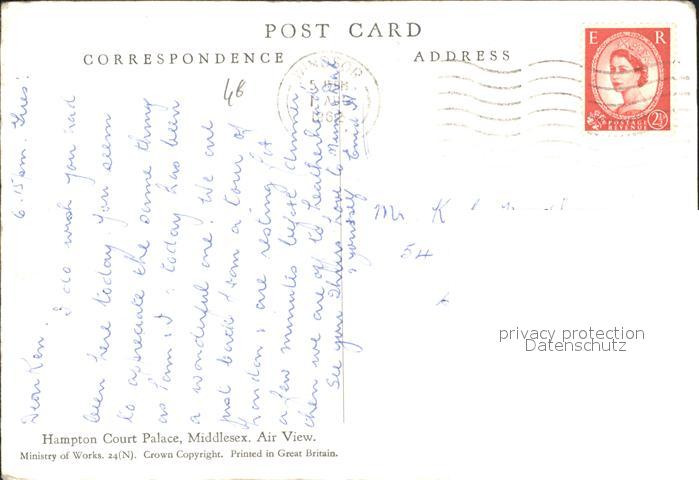 POST CARD
CORRESPONDENCE
ADDRESS
E R
POSTAGE
REVENUE
2½D
WINDSOR
48
6.15 pm. Thurs:
Dear Ken
I do wish you had
been here today. You seem
to appreciate the same thing
as I am & I. today has been
a wonderful one. We are
just back from a tour of
London & are resting for
a few minutes before dinner,
then we are off to Leatherhead.
See you Thurs Love to Mam & Dad
& yourself Enid
Mr K
54
privacy protection
Datenschutz
Hampton Court Palace, Middlesex. Air View.
Ministry of Works. 24(N). Crown Copyright. Printed in Great Britain.